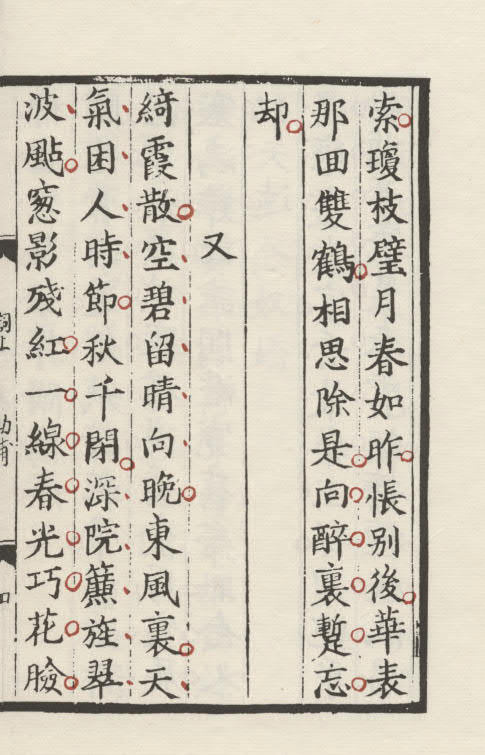 索瓊枝璧月春如昨悵别後華表
那回雙鶴相思除是向醉裏蹔忘
却
又
綺霞散空碧留晴向晚東風裏天
氣困人時節秋千閉深院簾旌翠
波颭窓影殘紅一線春光巧花臉